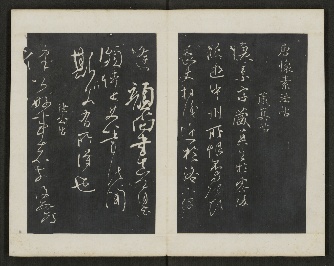 唐懷素法帖
藏真帖
懷素字藏真生於零陵
晚遊中州所恨不與張顛
長史相識近於洛下偶
逢顏尚書真卿自云
頗傳長史筆法聞
斯八法若有所得也
律公帖